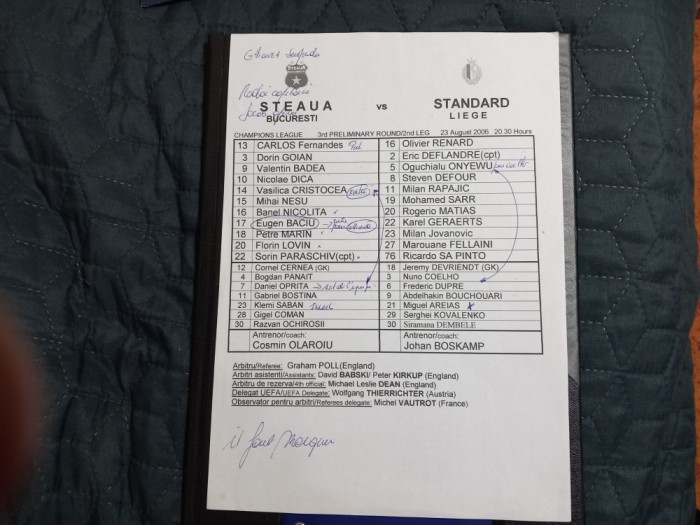 STEAUA vs STANDARD
BUCURESTI LIEGE
CHAMPIONS LEAGUE 3rd PRELIMINARY ROUND/2nd LEG 23 August 2006 20.30 Hours
13 CARLOS Fernandes 16 Olivier RENARD
3 Dorin GOIAN 2 Eric DEFLANDRE(cpt)
9 Valentin BADEA 5 Oguchialu ONYEWU
10 Nicolae DICA 8 Steven DEFOUR
14 Vasilica CRISTOCEA 11 Milan RAPAJIC
15 Mihai NESU 19 Mohamed SARR
16 Banel NICOLITA 20 Rogerio MATIAS
17 Eugen BACIU 22 Karel GERAERTS
18 Petre MARIN 23 Milan Jovanovic
20 Florin LOVIN 27 Marouane FELLAINI
22 Sorin PARASCHIV(cpt) 76 Ricardo SA PINTO
12 Cornel CERNEA (GK) 18 Jeremy DEVRIENDT (GK)
4 Bogdan PANAIT 3 Nuno COELHO
7 Daniel OPRITA 6 Frederic DUPRE
11 Gabriel BOSTINA 9 Abdelhakin BOUCHOUARI
23 Klemi SABAN 21 Miguel AREIAS
28 Gigel COMAN 29 Serghei KOVALENKO
30 Razvan OCHIROSII 30 Siramana DEMBELE
Antrenor/coach: Antrenor/coach:
Cosmin OLAROIU Johan BOSKAMP
Arbitru/Referee: Graham POLL(England)
Arbitri asistenti/Assistants: David BABSKI/ Peter KIRKUP (England)
Arbitru de rezerva/4th official: Michael Leslie DEAN (England)
Delegat UEFA/UEFA Delegate: Wolfgang THIERRICHTER (Austria)
Observator pentru arbitri/Referees delegate: Michel VAUTROT (France)